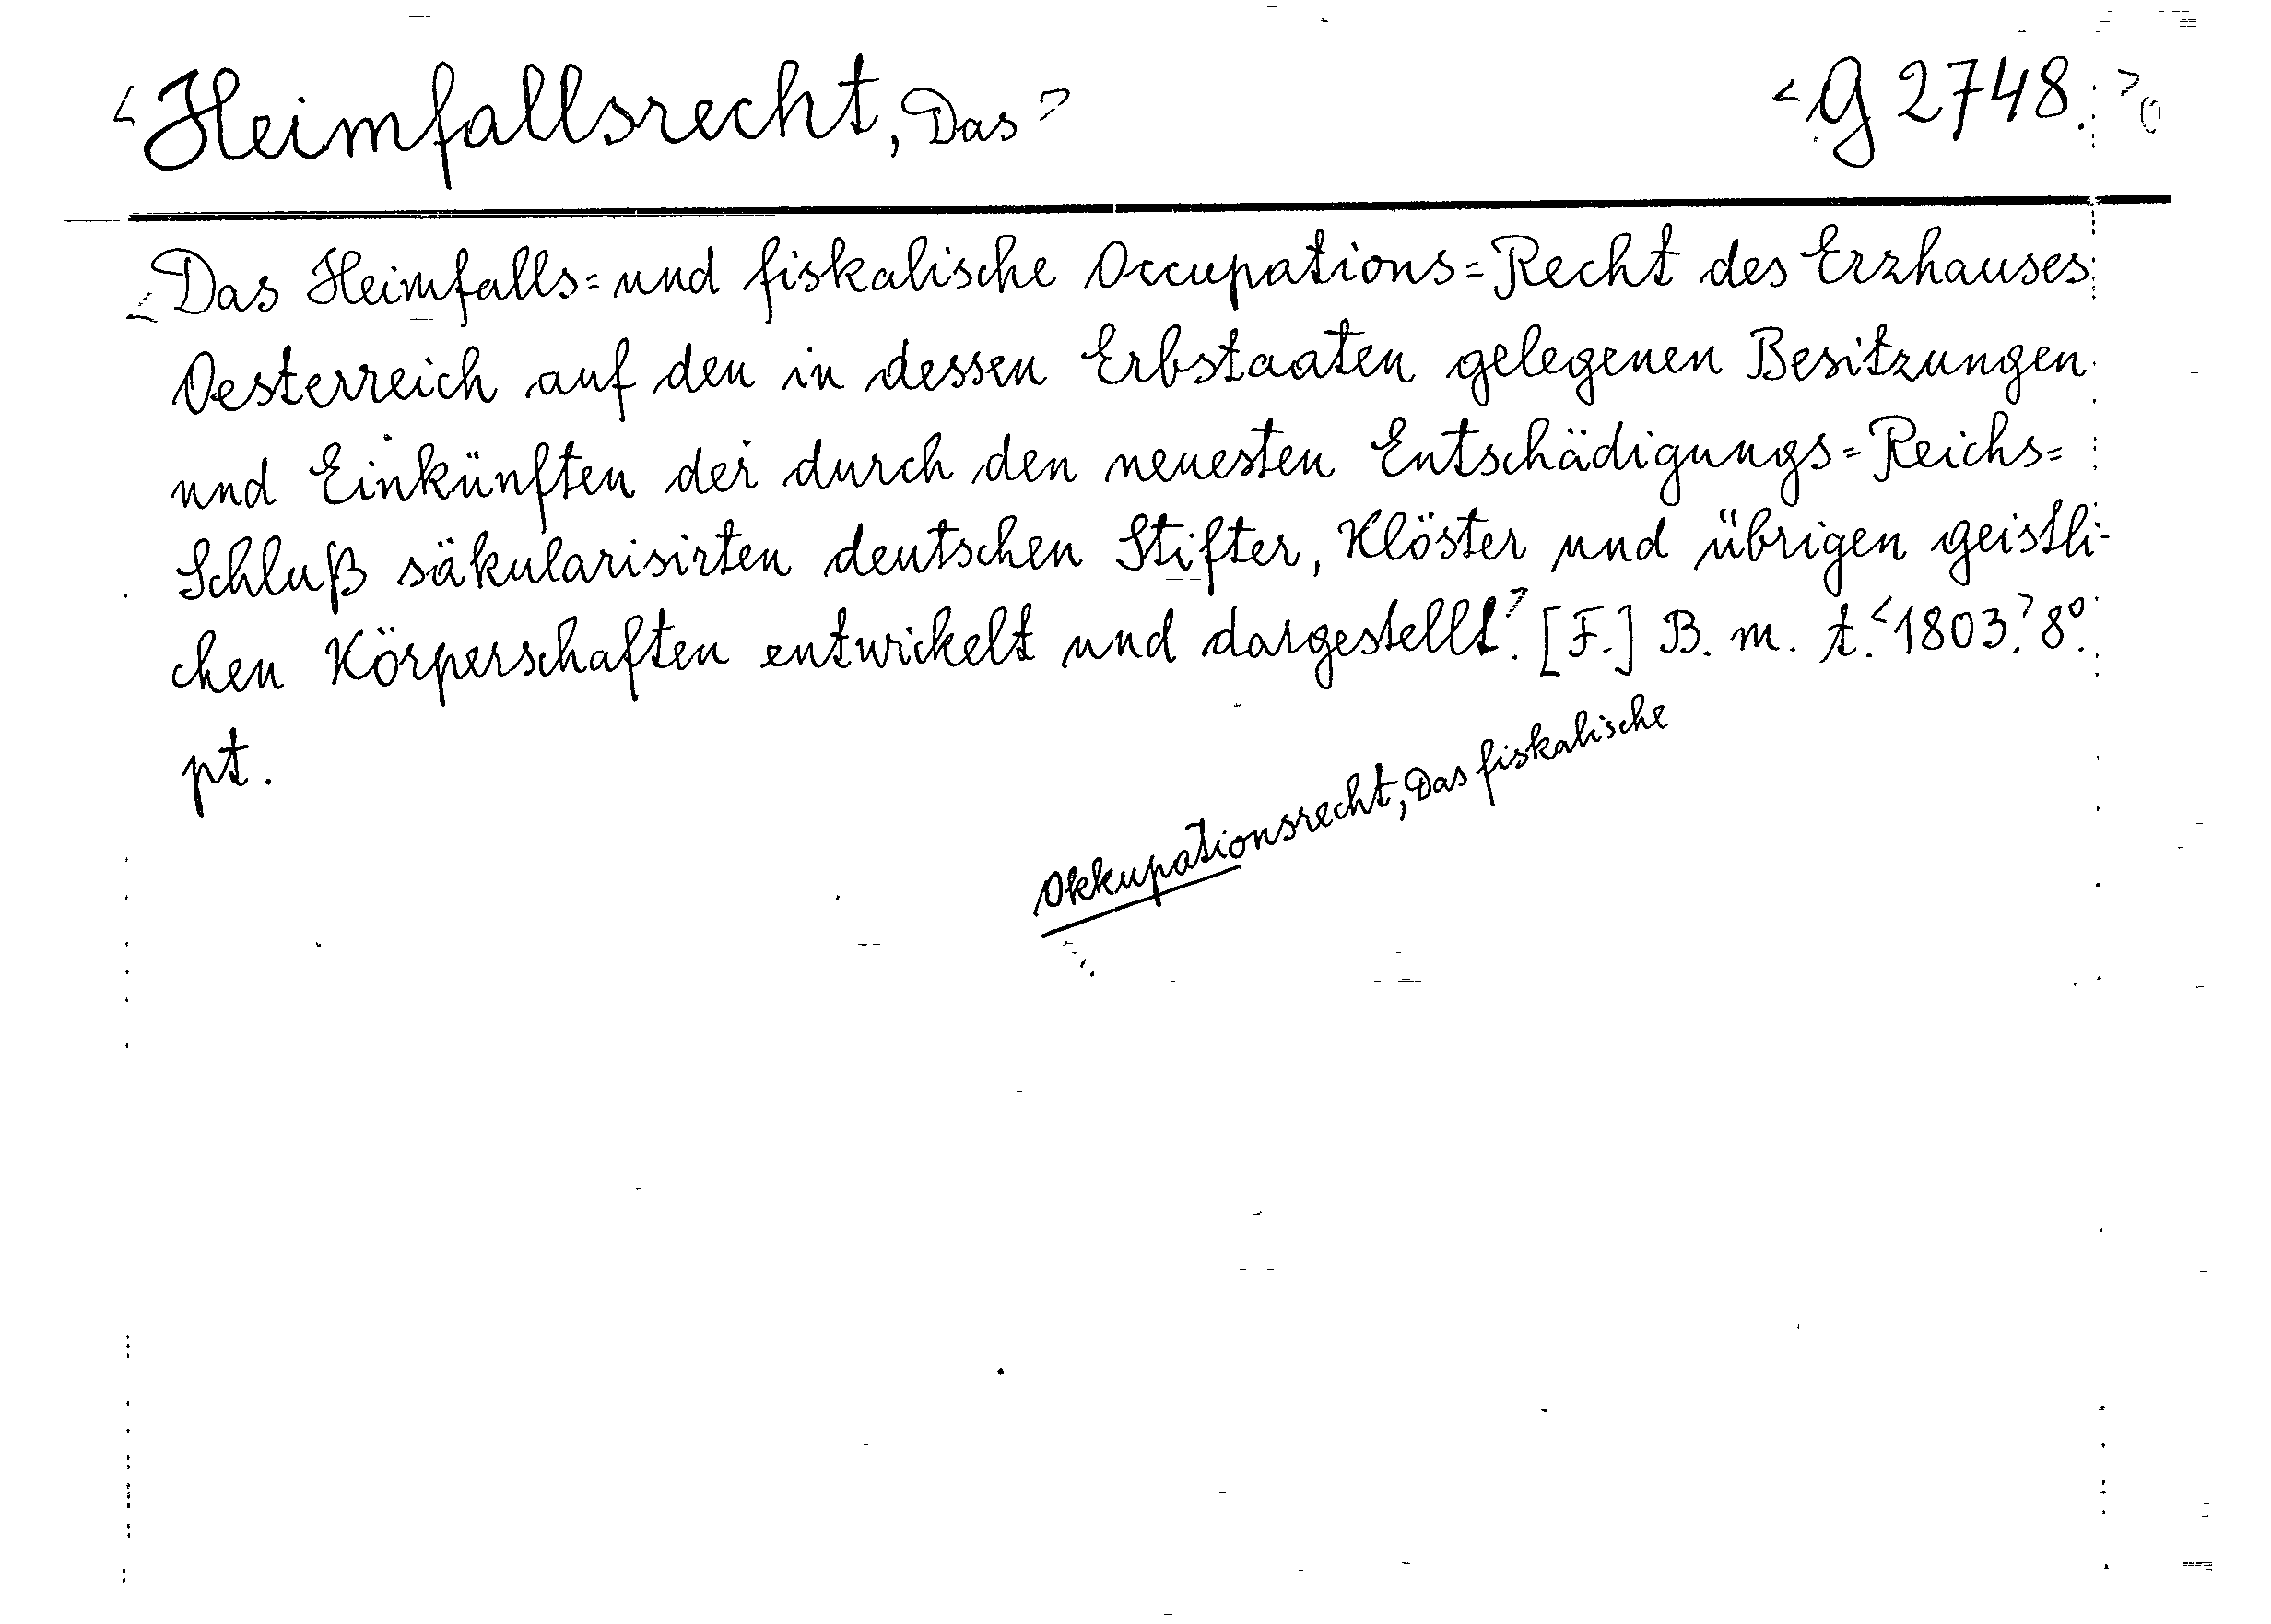 <Heimfallsrecht, Das>
<G 2748.>
<Das Heimfalls= und fiskalische Occupations=Recht des Erzhauses
Oesterreich auf den in dessen Erbstaaten gelegenen Besitzungen
und Einkünften der durch den neuesten Entschädigungs=Reichs=
Schluß säkularisirten deutschen Stifter, Klöster und übrigen geistli-
chen Körperschaften entwickelt und dargestellt>. [F.] B. m. t. <1803.> 8°.
pt.
Okkupationsrecht, Das fiskalische